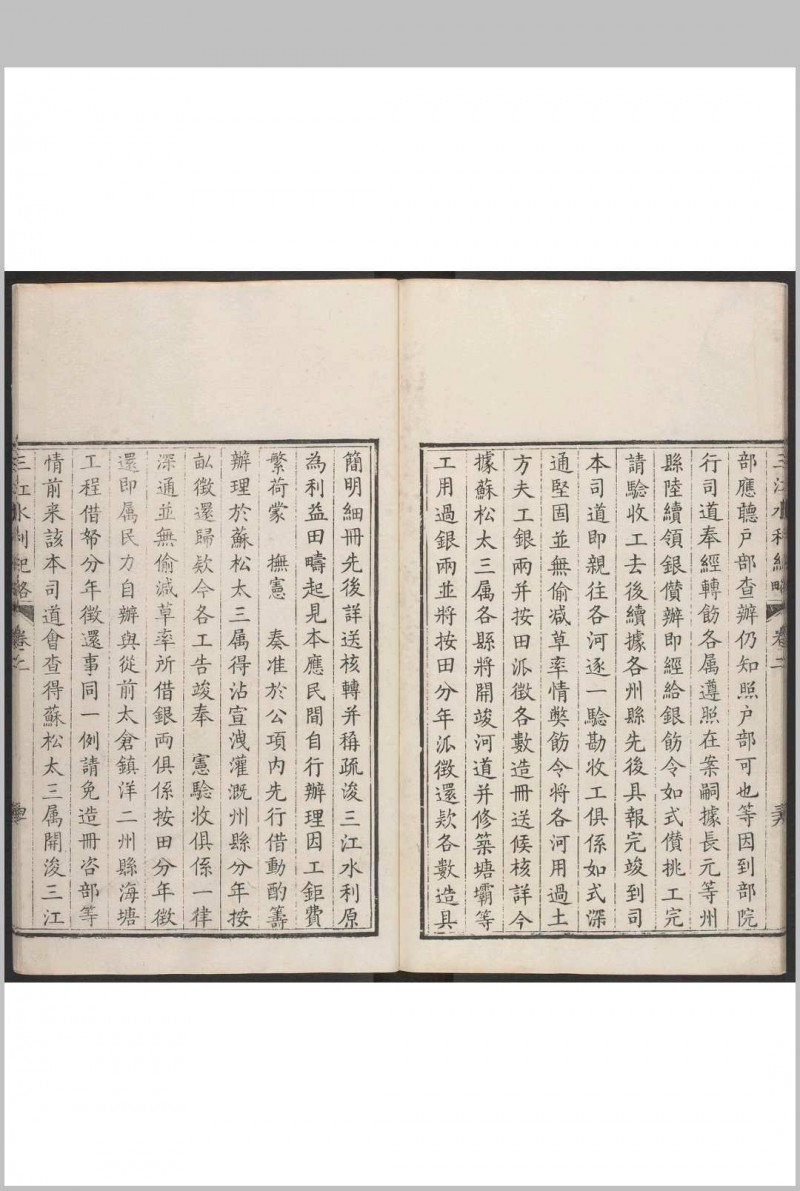 三江水利紀略 卷二
部應聽户部查辦仍知照户部可也等因到部院
行司道奉經轉飭各属遵照在案嗣據長元等州
縣陸續領銀儹辦即經給銀飭令如式儹挑工完
請驗收工去後續據各州縣先後具報完竣到司
本司道即親往各河逐一驗勘收工俱係如式深
通堅固並無偷減草率情獘飭令將各河用過土
方夫工銀兩并按田派徴各數造冊送候核詳今
據蘇松太三属各縣將開竣河道并修築塘壩等
工用過銀兩並將按田分年派徴還欵各數造具
簡明細冊先後詳送核轉并稱疏浚三江水利原
為利益田疇起見本應民間自行辦理因工鉅費
繁荷蒙 撫憲 奏准於公項内先行借動酌籌
辦理於蘇松太三属得沾宣洩灌溉州縣分年按
畝徴還歸欵今各工告竣奉 憲驗收俱係一律
深通並無偷減草率所借銀兩俱係按田分年徴
還即属民力自辦與從前太倉鎮洋二州縣海塘
工程借帑分年徴還事同一例請免造冊咨部等
情前来該本司道會查得蘇松太三属開浚三江
三江水利紀略 卷二